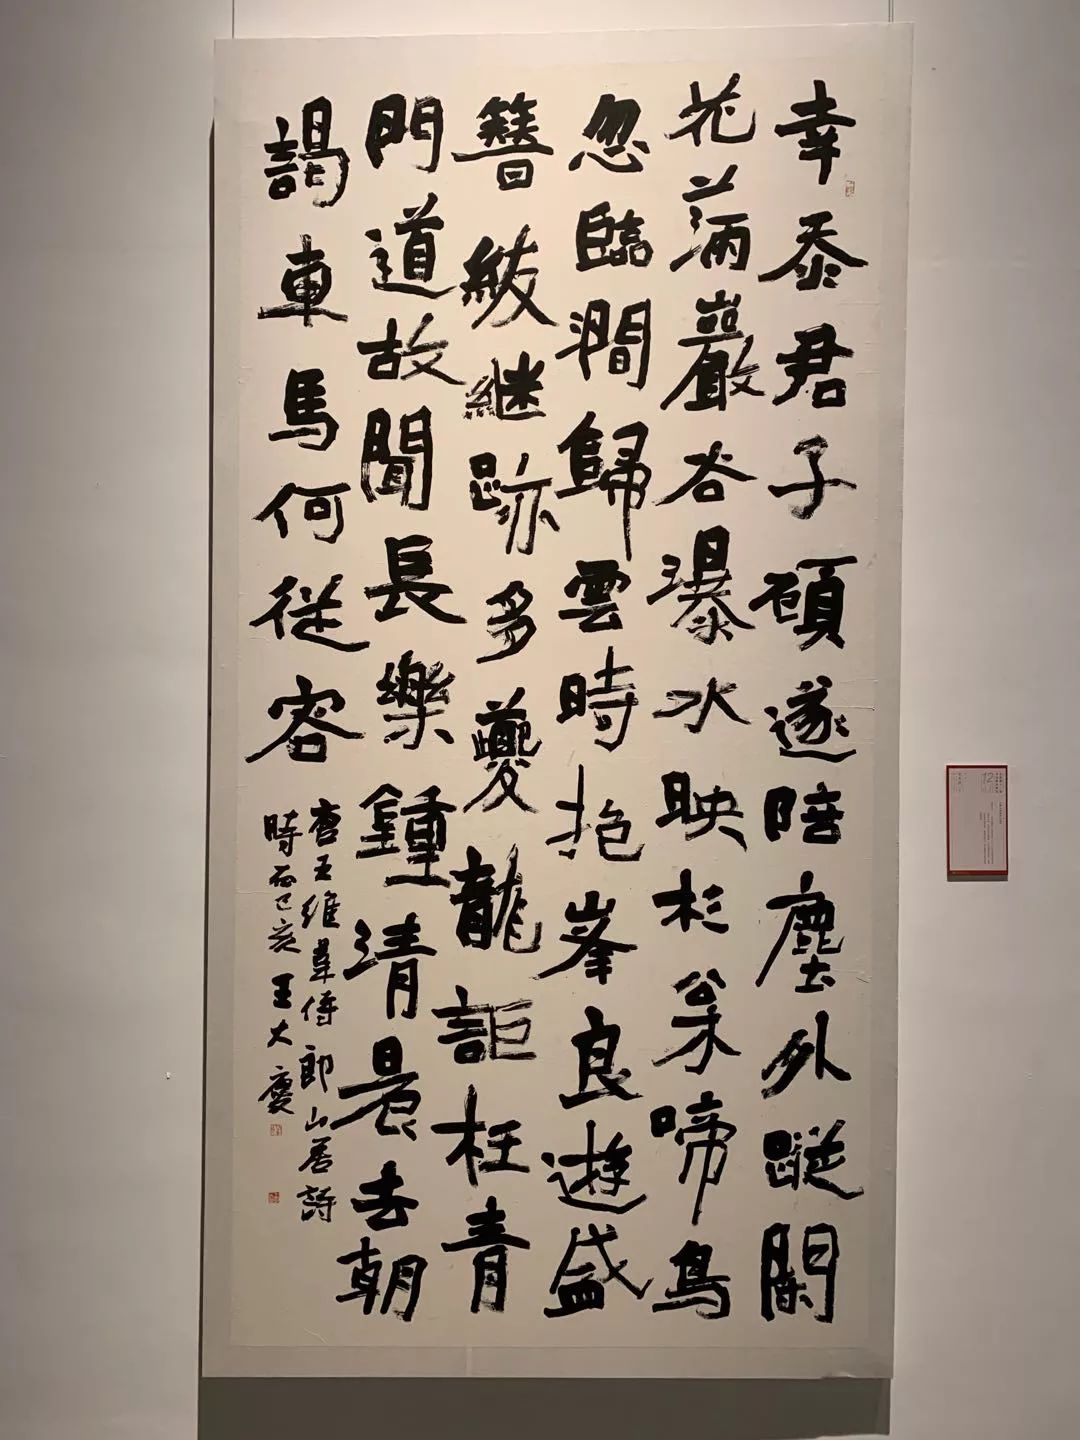 幸忝君子頋遂陪塵外蹤閑
花滿巖谷瀑水映杉枀啼鳥
忽臨澗歸雲時抱峯良遊盛
簪紱継跡多夔龍詎枉青
門道故聞長樂鍾清晨去朝
謁車馬何從容
唐王維韋侍郎山居詩
時在己亥王大慶
12